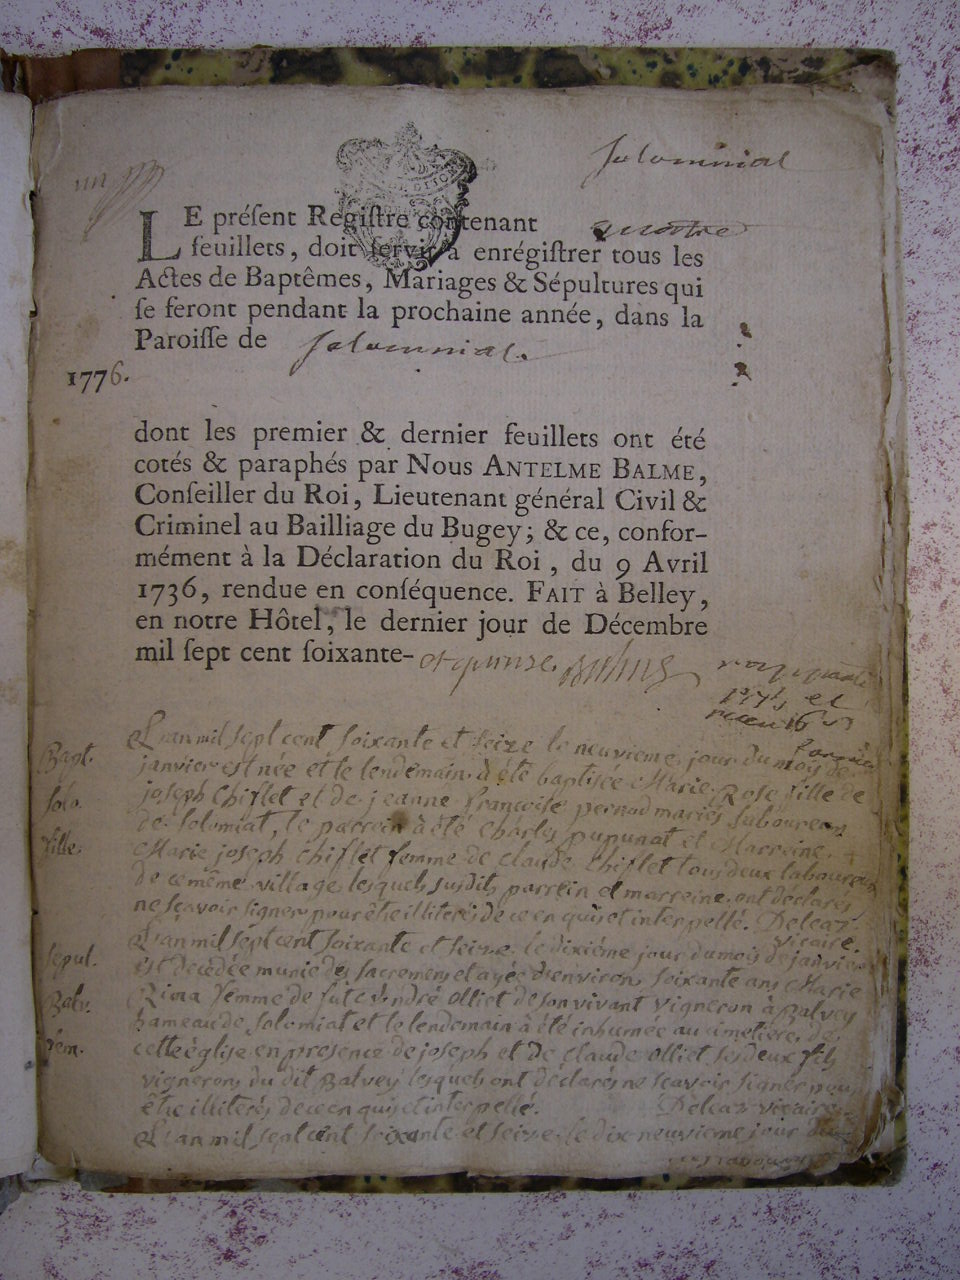 Solomniat
LE présent Registre contenant quattre
feuillets, doit servir à enrégistrer tous les
Actes de Baptêmes, Mariages & Sépultures qui
se feront pendant la prochaine année, dans la
Paroisse de Solomniat.
1776.
dont les premier & dernier feuillets ont été
cotés & paraphés par Nous ANTELME BALME,
Conseiller du Roi, Lieutenant général Civil &
Criminel au Bailliage du Bugey; & ce, confor-
mément à la Déclaration du Roi, du 9 Avril
1736, rendue en conséquence. FAIT à Belley,
en notre Hôtel, le dernier jour de Décembre
mil sept cent soixante- et quinze. Balme
Bapt. L'an mil sept cent soixante et seize le neuvieme jour du mois de
janvier est née et le lendemain à été baptisée Marie Rose fille de
Solo. joseph Chiflet et de jeanne françoise pernod mariés laboureurs
de Solomiat, le parrein à été Charles pupunat et Marreine
fille. Marie joseph Chiflet femme de claude Chiflet tous deux laboureurs
de ce même village lesquels susdits parrein et marreine ont déclarés
ne sçavoir signer pour être illiterés de ce enquis et interpellé. Deleaz
vicaire.
L'an mil sept cent soixante et seize le dixiéme jour du mois de janvier
sepul. est décédée munie des sacremens et agée d'environ soixante ans Marie
Balv. femme de fut André Olliet de son vivant vigneron à Balvey
hameau de Solomiat et le lendemain à été inhumée au cimetiére de
fem. cette église en presence de joseph et de claude Olliet ses deux fils
vignerons du dit Balvey lesquels ont déclarés ne sçavoir signer pour
être illiterés de ce enquis et interpellé. Deleaz vicaire.
L'an mil sept cent soixante et seize le dix neuvieme jour du